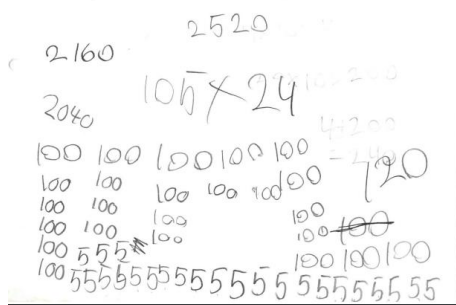 2520
2160
105 × 24
2040
120
100 100 100 100 100
100 100 100 100 100 100
100 100 100 100
100 100 100 100 100
100 5 5 5 100 100 100
100 5 5 5 5 5 5 5 5 5 5 5 5 5 5 5 5 5 5 5 5 5